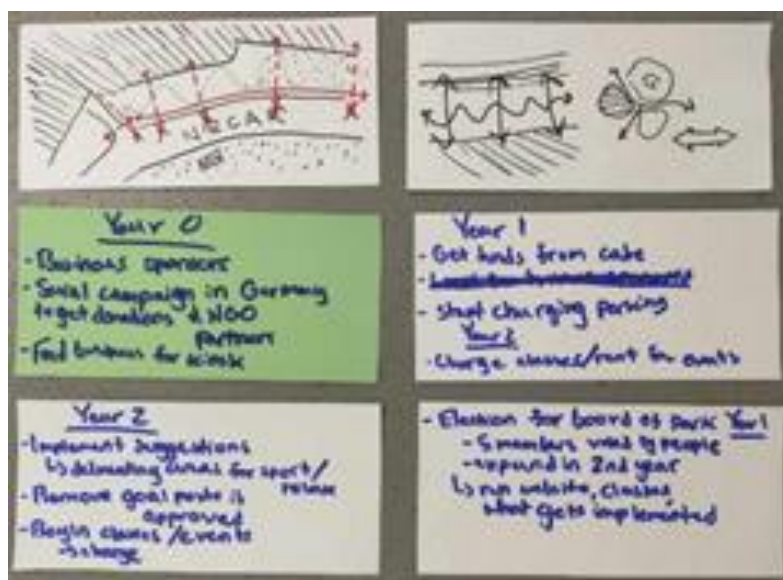 Year 0
- Business sponsors
- Social campaign in Germany
to get donations & NGO
partners
- Find business for kiosk
Year 1
- Get funds from cafe
- Start charging parking
Year 2
- Charge classes/rent for events
Year 2
- Implement suggestions
↳ delineating areas for sport/
- Remove goal posts if
approved
- Begin classes/events
→ charge
- Election for board of park Year 1
- 5 members voted by people
- expand in 2nd year
↳ run website, classes
what gets implemented